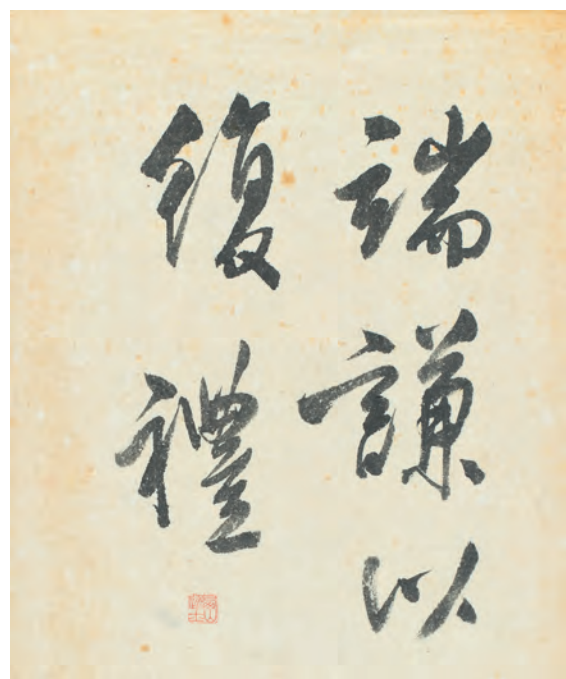 端謙以
復禮